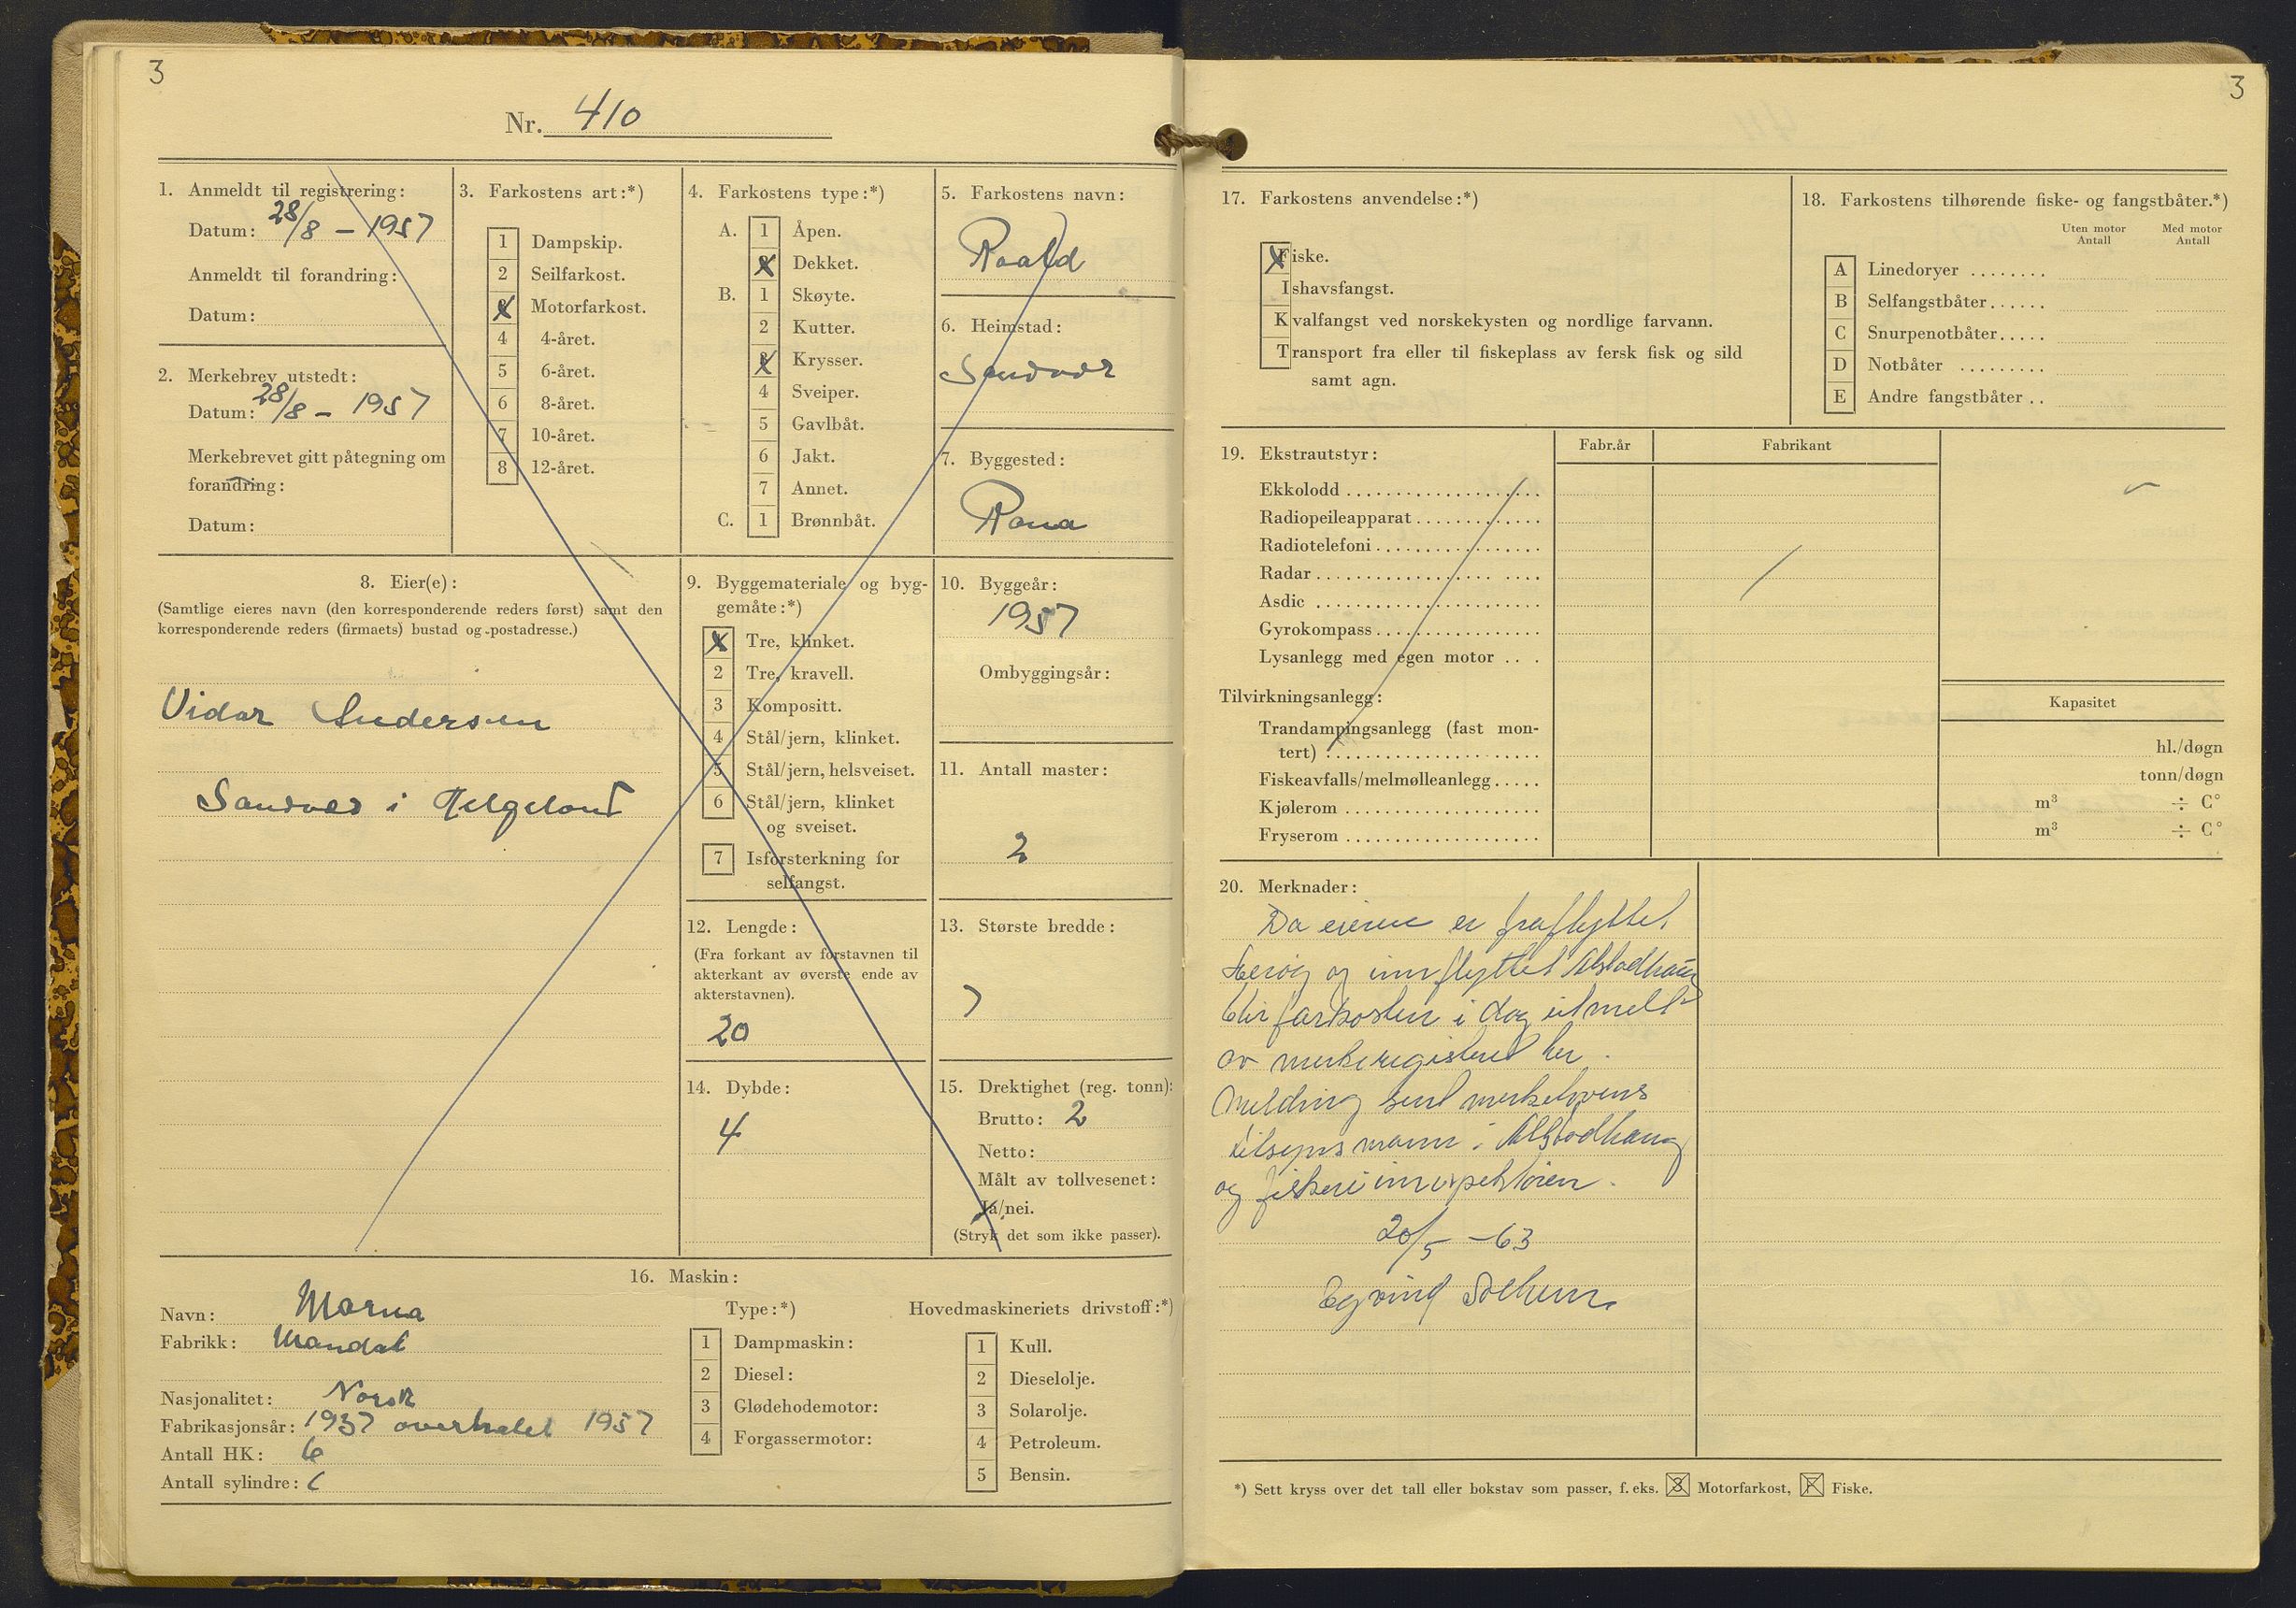 3
Nr. 410
1. Anmeldt til registrering:
Datum: 28/8 – 1957
Anmeldt til forandring:
Datum:
2. Merkebrev utstedt:
Datum: 28/8 – 1957
Merkebrevet gitt påtegning om
forandring:
Datum:
3. Farkostens art:*)
1 Dampskip.
2 Seilfarkost.
X Motorfarkost.
4 4-året.
5 6-året.
6 8-året.
7 10-året.
8 12-året.
4. Farkostens type:*)
A. 1 Åpen.
X Dekket.
B. 1 Skøyte.
2 Kutter.
X Krysser.
4 Sveiper.
5 Gavlbåt.
6 Jakt.
7 Annet.
C. 1 Brønnbåt.
5. Farkostens navn:
Roald
6. Heimstad:
Sandvær
7. Byggested:
Rana
8. Eier(e):
(Samtlige eieres navn (den korresponderende reders først) samt den
korresponderende reders (firmaets) bustad og postadresse.)
Vidar Andersen
Sandvær i Helgeland
9. Byggemateriale og byg-
gemåte:*)
X Tre, klinket.
2 Tre, kravell.
3 Kompositt.
4 Stål/jern, klinket.
5 Stål/jern, helsveiset.
6 Stål/jern, klinket
og sveiset.
7 Isforsterkning for
selfangst.
10. Byggeår:
1957
Ombyggingsår:
11. Antall master:
2
12. Lengde:
(Fra forkant av forstavnen til
akterkant av øverste ende av
akterstavnen).
20
13. Største bredde:
7
14. Dybde:
4
15. Drektighet (reg. tonn):
Brutto: 2
Netto:
Målt av tollvesenet:
Ja/nei.
(Stryk det som ikke passer).
16. Maskin:
Navn: Marna
Fabrikk: Mandal
Nasjonalitet: Norsk
Fabrikasjonsår: 1937 overhalet 1957
Antall HK: 6
Antall sylindre:
Type:*)
1 Dampmaskin:
2 Diesel:
3 Glødehodemotor:
4 Forgassermotor:
Hovedmaskineriets drivstoff:*)
1 Kull.
2 Dieselolje.
3 Solarolje.
4 Petroleum.
5 Bensin.
3
17. Farkostens anvendelse:*)
X Fiske.
Ishavsfangst.
Kvalfangst ved norskekysten og nordlige farvann.
Transport fra eller til fiskeplass av fersk fisk og sild
samt agn.
18. Farkostens tilhørende fiske- og fangstbåter.*)
Uten motor Antall
Med motor Antall
A Linedoryer ........
B Selfangstbåter......
C Snurpenotbåter.....
D Notbåter .........
E Andre fangstbåter ..
19. Ekstrautstyr:
Fabr.år
Fabrikant
Ekkolodd ....................
Radiopeileapparat .............
Radiotelefoni .................
Radar ..................... ....
Asdic .......................
Gyrokompass .................
Lysanlegg med egen motor ... .
Tilvirkningsanlegg:
Kapasitet
Trandampingsanlegg (fast mon-
tert) ......................
hl./døgn
Fiskeavfalls/melmølleanlegg .....
tonn/døgn
Kjølerom ....................
m³ ÷ C°
Fryserom ....................
m³ ÷ C°
20. Merknader:
Da eieren er fraflyttet
Herøy og innflyttet Alstadhaug
blir farkosten i dag utmeldt
av merkeregistret her.
Melding sendt merkelovens
tilsynsmann i Alstadhaug
og fiskeriinspektøren.
20/5 – 63
Eyvind Solheim
*) Sett kryss over det tall eller bokstav som passer, f. eks. 3 Motorfarkost, F Fiske.